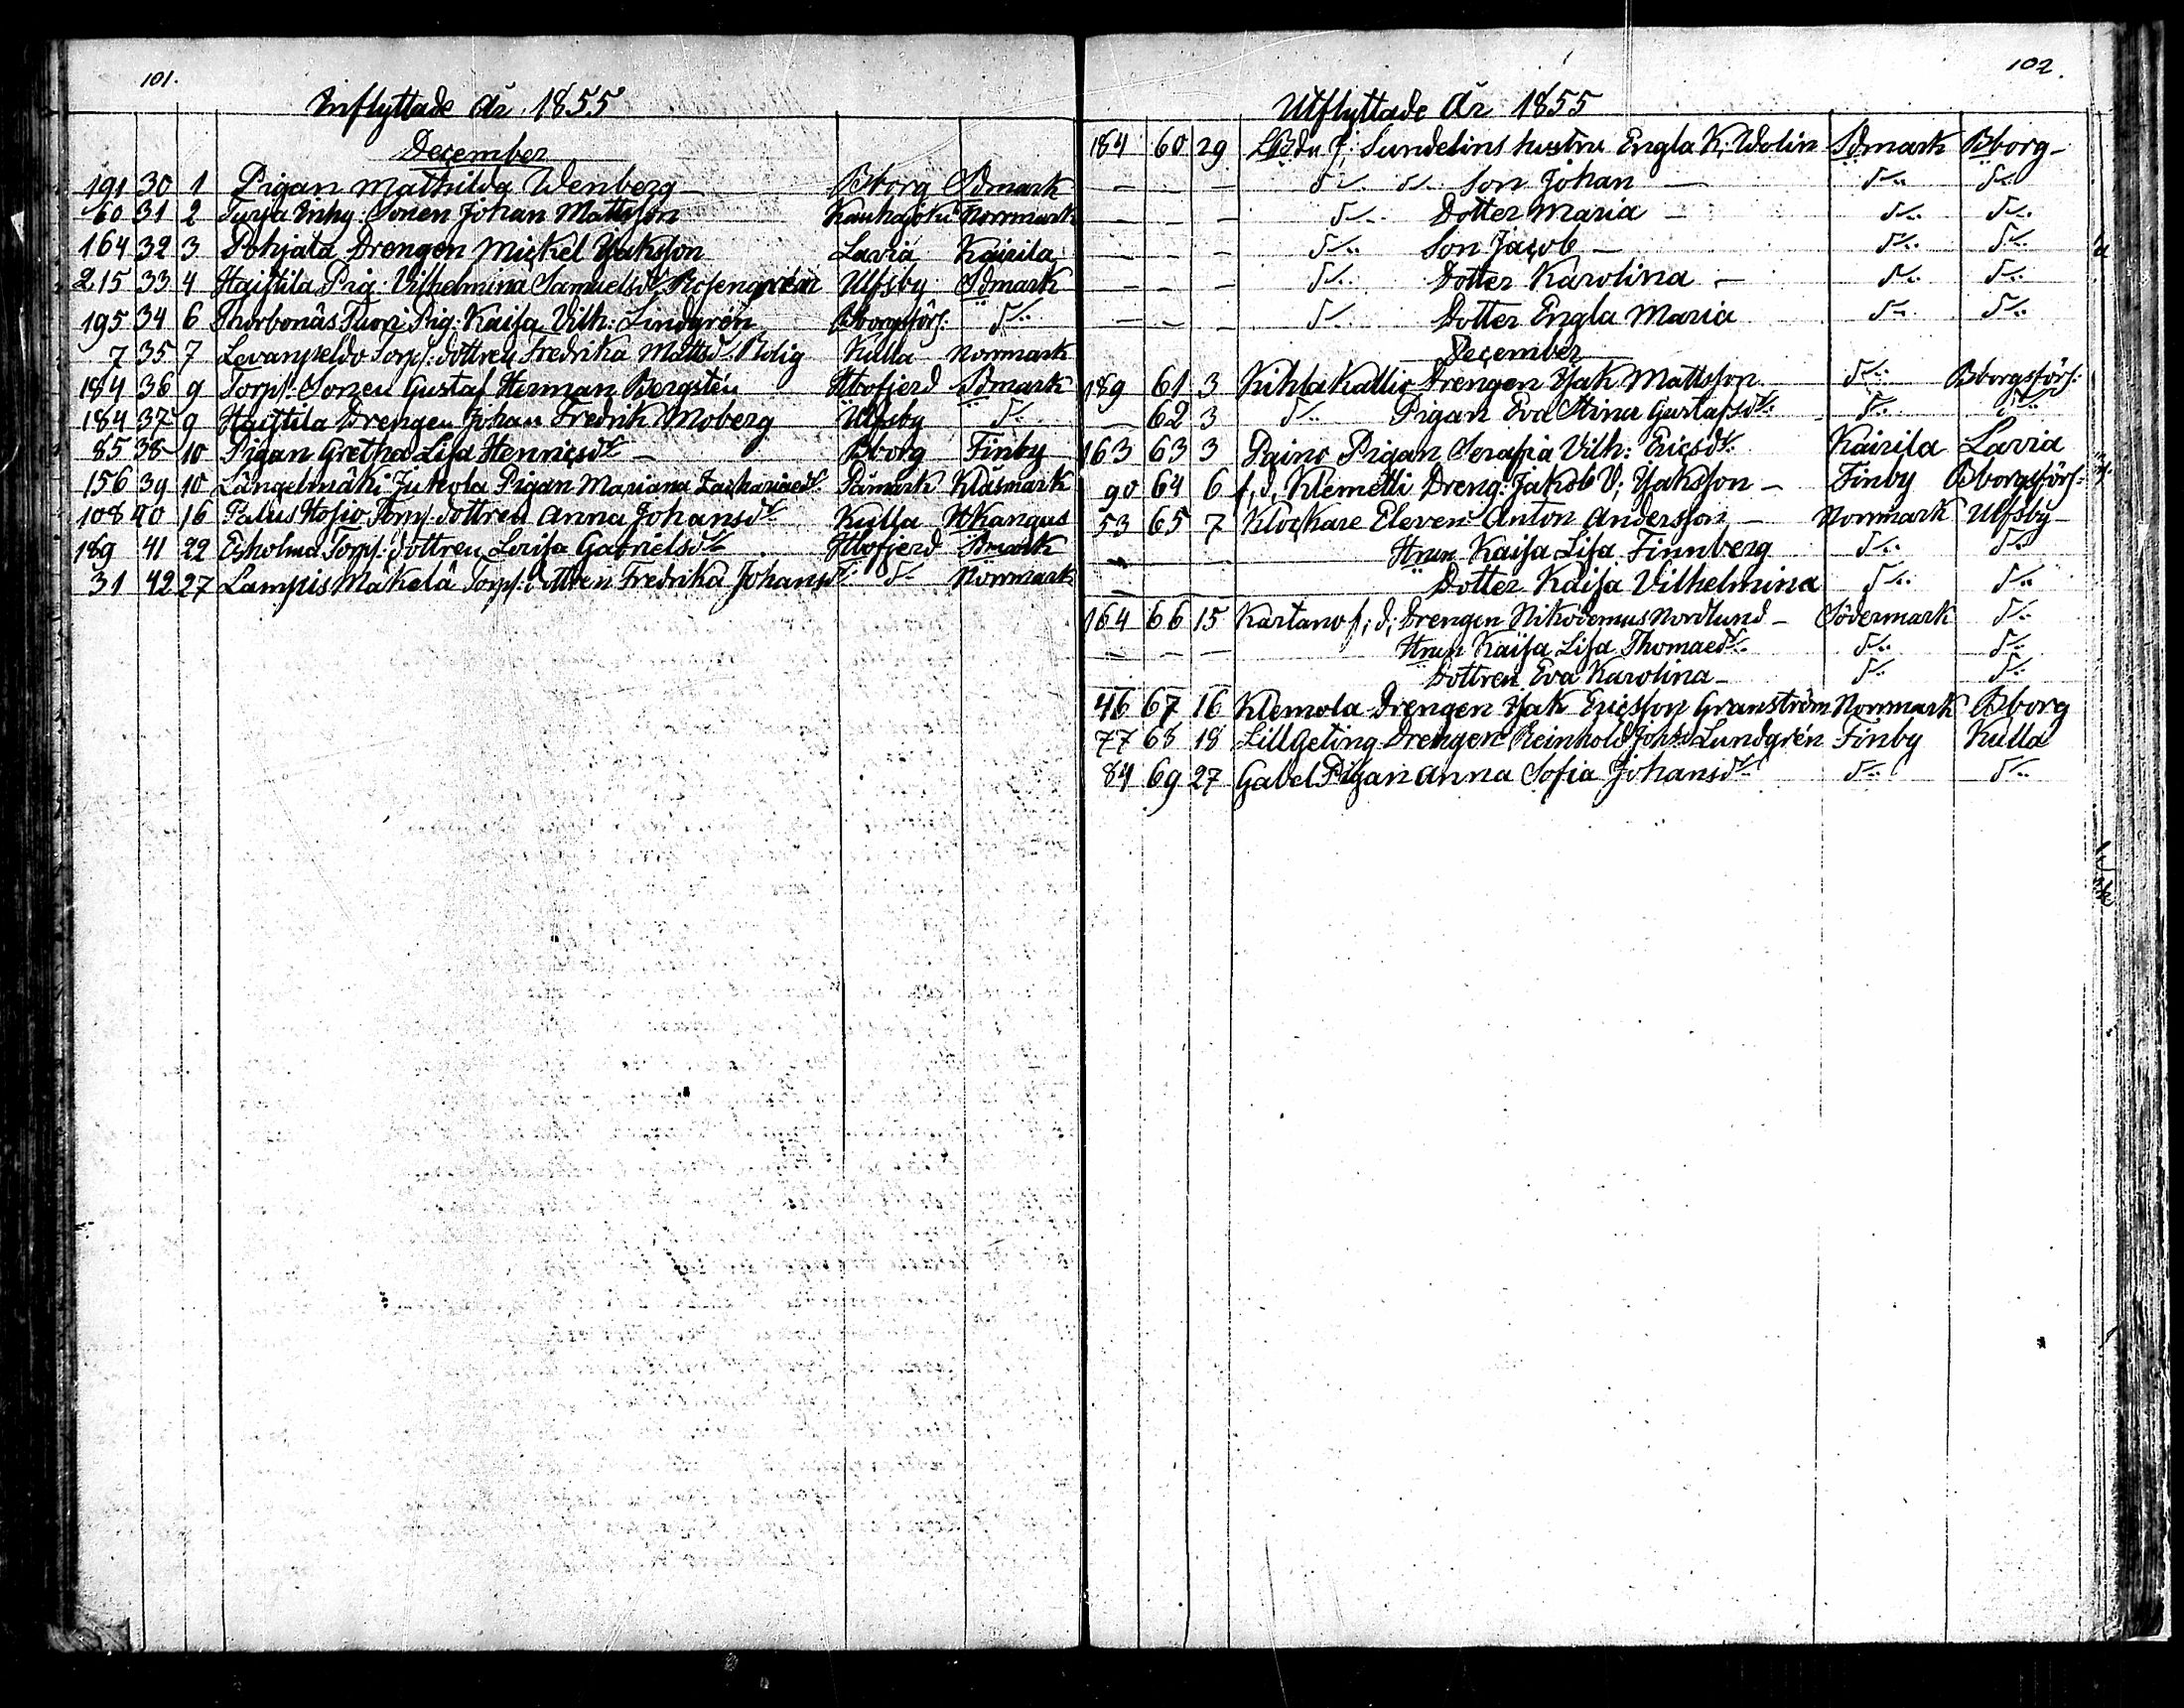 101.
Inflyttade år 1855
December
191 30 1 Pigan Mathilda Wenberg — Bborg Sdmark
60 31 2 Turja Inhy: Sonen Johan Mattsson Kauhajoki Norrmark
164 32 3 Pohjala Drengen Mickel Isaksson Lavia Kairila
215 33 4 Haistila Pig: Vilhelmina Samuelsdr Rosengrén Ulfsby Sdmark
195 34 6 Thorbonäs Pig: Kaisa Vilh: Lindgrén Bborgsförs: d:o
7 35 7 Torp: dottren Fredrika Mattsdr Rolig Kulla Norrmark
184 36 9 Torp: Sonen Gustaf Herman Bergstén Hbofjerd Sdmark
184 37 9 Haistila Drengen Johan Fredrik Moberg Ulfsby d:o
85 38 10 Pigan Gretha Lisa Henricsdr — Bborg Finby
156 39 10 Längelmäki Jukola Pigan Mariana Zachariaedr Påmark Klåsmark
108 40 16 Palus Torp: dottren Anna Johansdr Kulla Hkangas
189 41 22 Torp: dottren Lovisa Gabrielsdr Hbofjerd Smark
31 42 27 Lampis Mäkelä Torp: dottren Fredrika Johansdr d:o Norrmark
102.
Utflyttade år 1855
184 60 29 J: Sundelins hustru Engla K: Wolin Sdmark Bborg —
— — — d:o d:o Son Johan — d:o d:o
— — — d:o Dotter Maria — d:o d:o
— — — d:o Son Jacob — d:o d:o
— — — d:o Dotter Karolina — d:o d:o
— — — d:o Dotter Engla Maria d:o d:o
December
189 61 3 Kikla Kallio Drengen Isak Mattsson d:o Bborgsförs:
— 62 3 d:o Pigan Eva Stina Gustafsdr d:o d:o
163 63 3 Paino Pigan Serafia Vilh: Ericsdr Kairila Lavia
90 64 6 f, d, Klemetti Dreng: Jakob V; Isaksson — Finby Bborgsförs:
53 65 7 Klockare Eleven Anton Andersson — Norrmark Ulfsby —
— — — Hrun Kaisa Lisa Finnberg d:o d:o
— — — Dotter Kaisa Vilhelmina d:o d:o
164 66 15 Kartano f; d; Drengen Nikodemus Nordlund — Södermark d:o
— — — Hrun Kaisa Lisa Thomaedr d:o d:o
Dottren Eva Karolina — d:o d:o
46 67 16 Klemola Drengen Isak Ericsson Granström Norrmark Bborg
77 68 18 Lill Geting Drengen Reinhold Johs Lundgrén Finby Kulla
84 69 27 Gabel Pigan Anna Sofia Johansdr d:o d:o